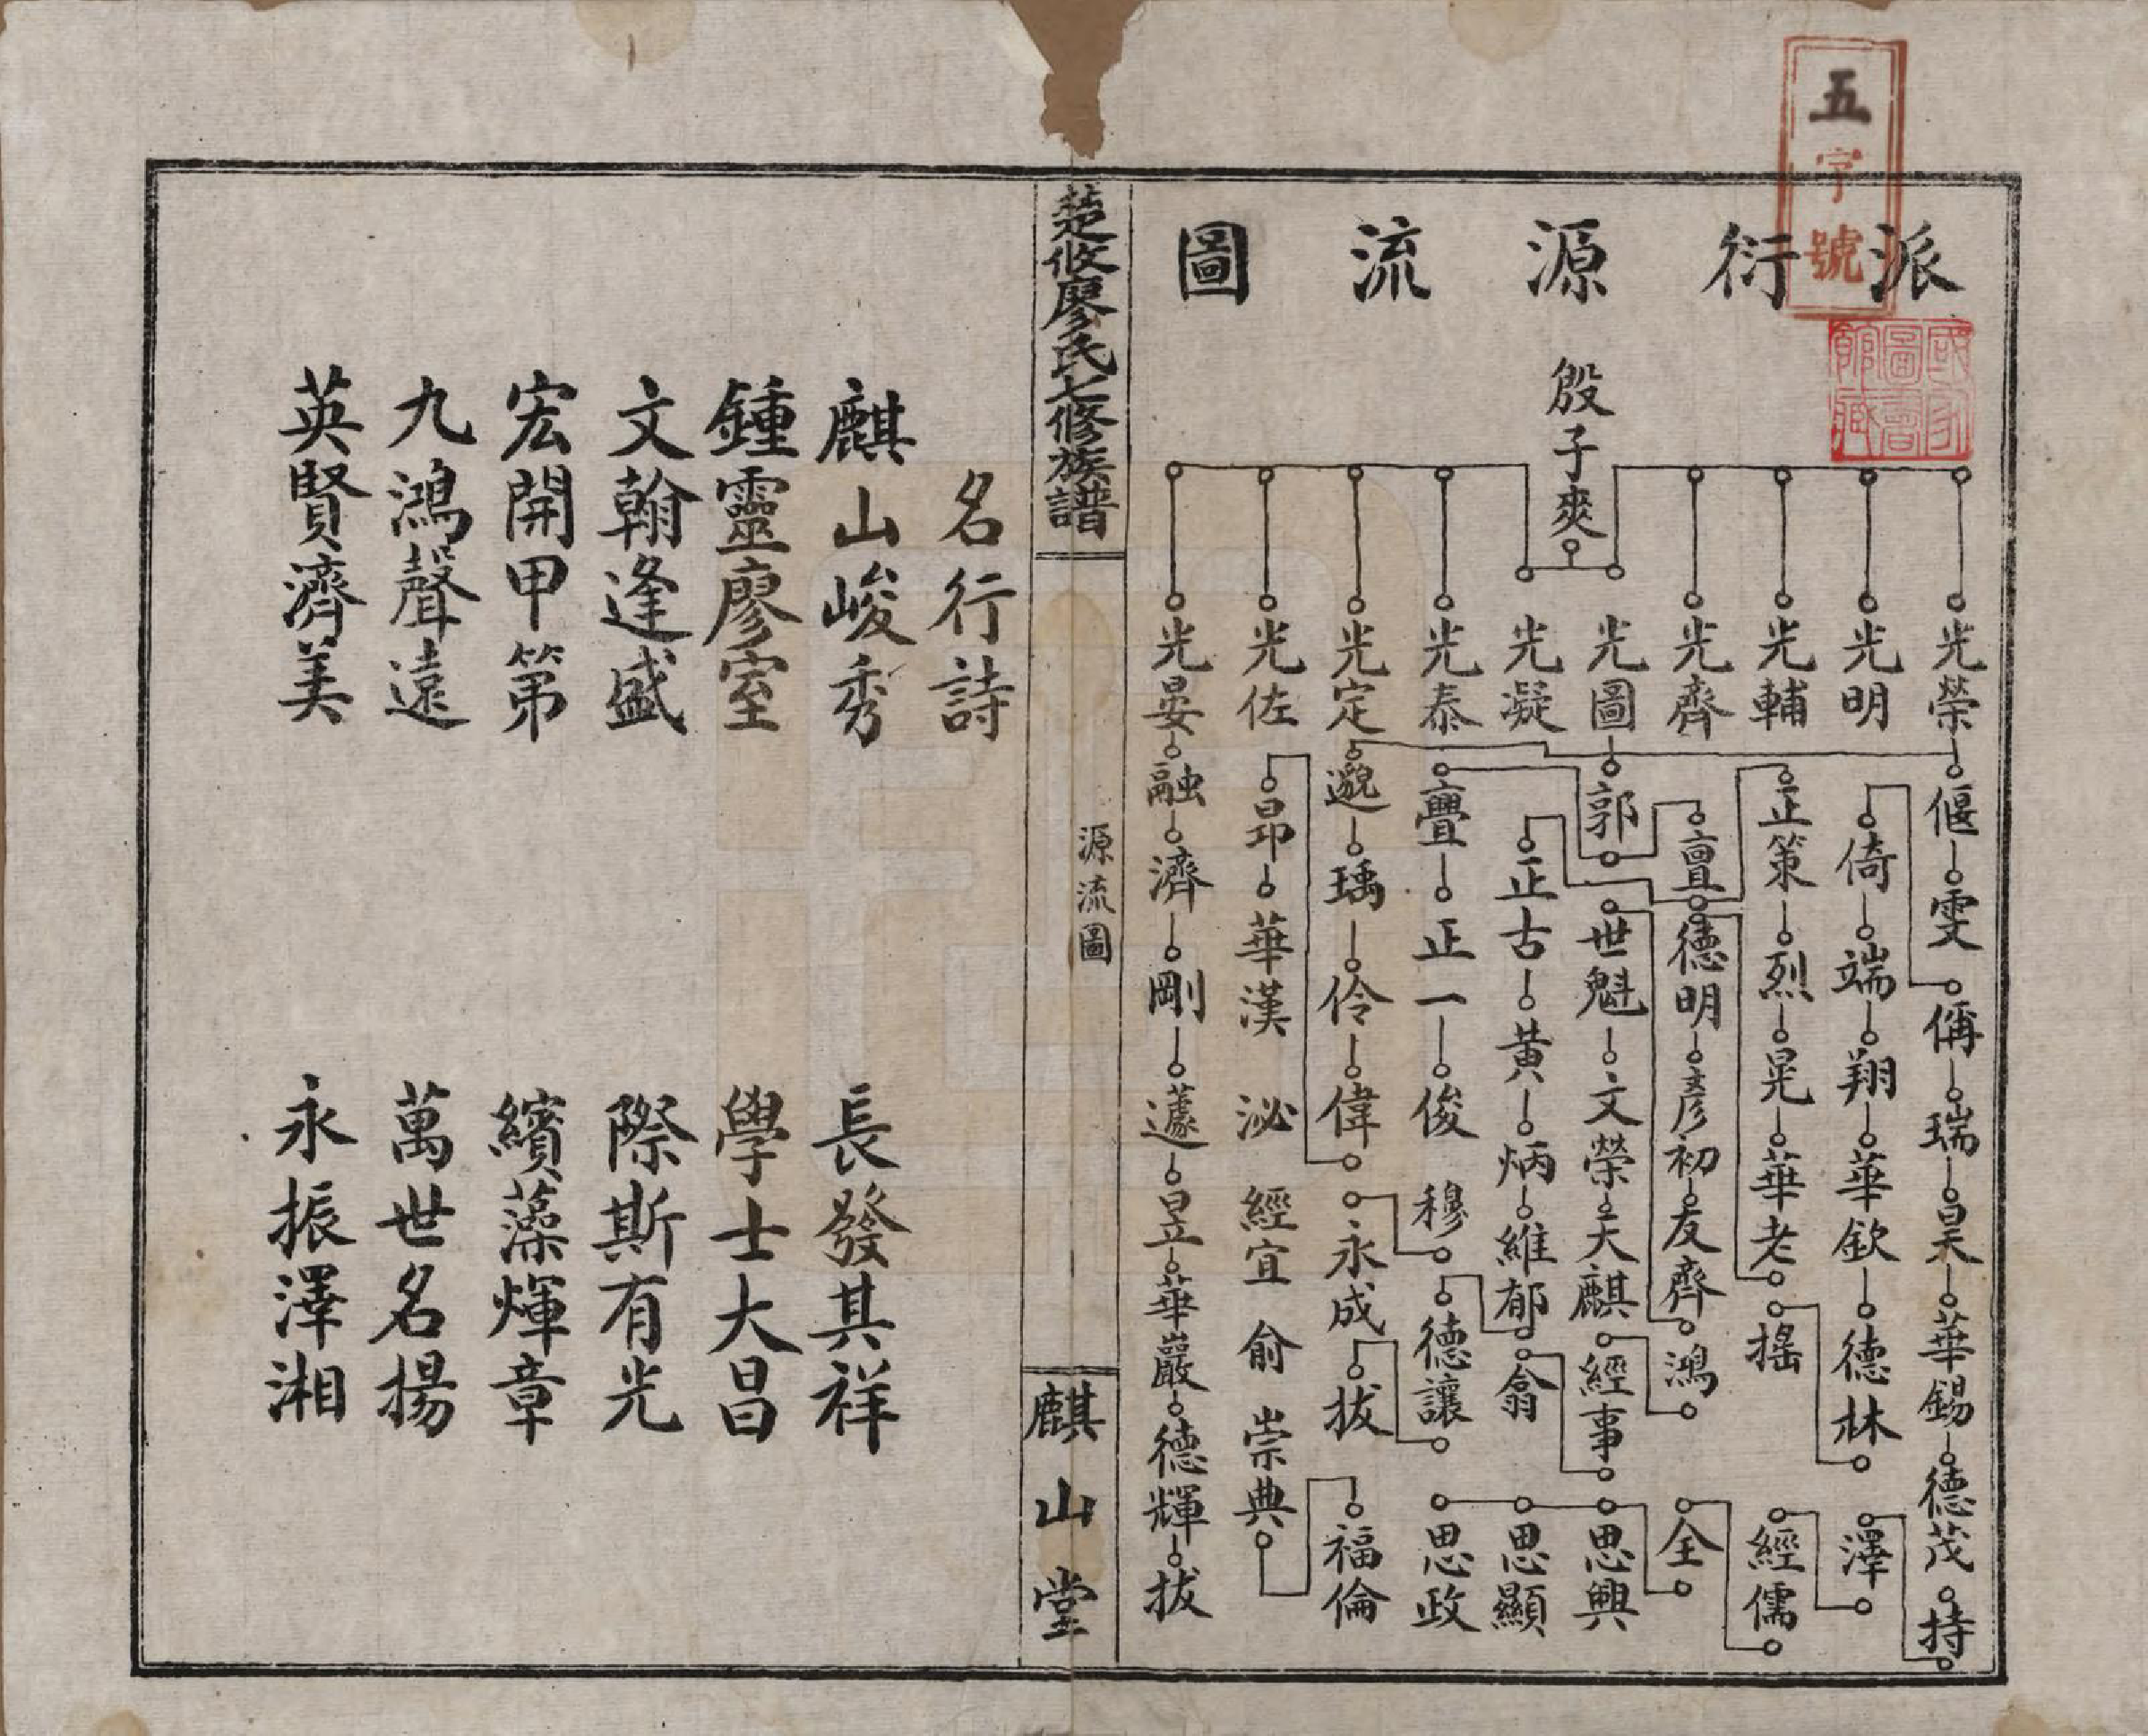 五字號
派衍源流圖
國家圖書館藏
殷子夾
光榮 偃 雯 偁 瑞 昊 華錫 德茂 持
光明 倚 端 翔 華欽 德林 澤
光輔 正策 烈 晃 華老 搖 經儒
光齊 亶 德明 彥初 友齊 鴻 全
光圖 郭 世魁 文榮 天麒 經事 思興
光凝 正古 黃 炳 維郁 翕 思顯
光泰 疊 正一 俊 穆 德讓 思政
光定 邈 瑀 伶 偉 永成 拔 福倫
光佐 昴 華漢 泌 經宜 俞 崇典
光晏 融 濟 剛 蘧 昱 華嚴 德輝 拔
楚攸廖氏七修族譜
源流圖
麒山堂
名行詩
麒山峻秀 長發其祥
鍾靈廖室 學士大昌
文翰逢盛 際斯有光
宏開甲第 繽藻煇章
九鴻聲遠 萬世名揚
英賢濟美 永振澤湘